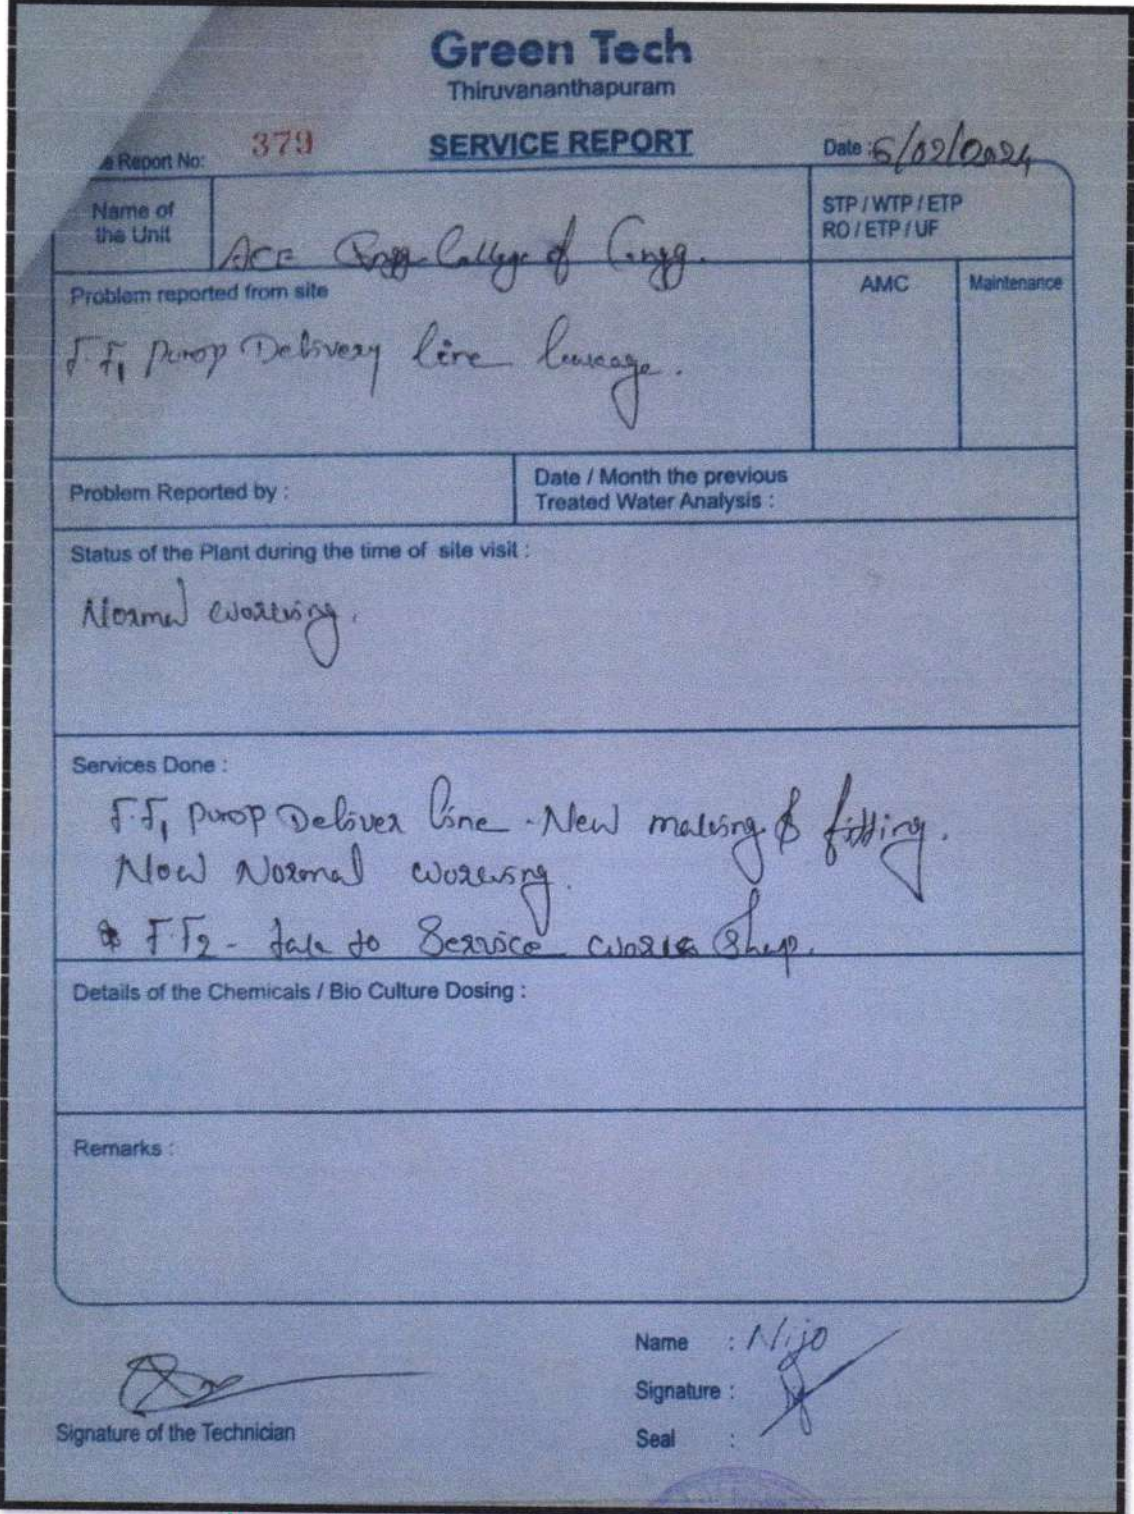 Green Tech
Thiruvananthapuram
SERVICE REPORT
Report No: 379
Date : 6/02/2024
Name of the Unit
ACE College of Engg.
STP / WTP / ETP
RO / ETP / UF
Problem reported from site
AMC
Maintenance
F.F1 pump Delivery line leakage.
Problem Reported by :
Date / Month the previous
Treated Water Analysis :
Status of the Plant during the time of site visit :
Normal working.
Services Done :
F.F1 pump Deliver line - New making & fitting.
Now Normal working.
F.F2 - to Service work shop.
Details of the Chemicals / Bio Culture Dosing :
Remarks :
Name : Nijo
Signature :
Signature of the Technician
Seal :